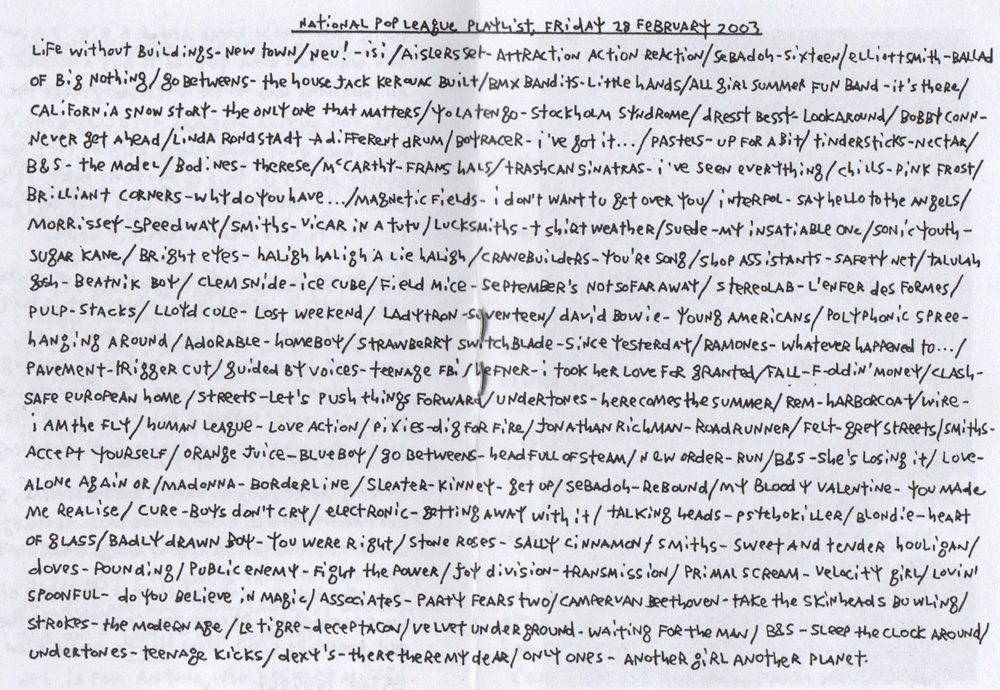 NATIONAL POP LEAGUE PLAYLIST, FRIDAY 28 FEBRUARY 2003
LIFE WITHOUT BUILDINGS - NEW TOWN / NEU! - ISI / AISLERS SET - ATTRACTION ACTION REACTION / SEBADOH - SIXTEEN / ELLIOTT SMITH - BALLAD
OF BIG NOTHING / GO BETWEENS - THE HOUSE JACK KEROUAC BUILT / BMX BANDITS - LITTLE HANDS / ALL GIRL SUMMER FUN BAND - IT'S THERE /
CALIFORNIA SNOW STORY - THE ONLY ONE THAT MATTERS / YO LA TENGO - STOCKHOLM SYNDROME / DRESSY BESSY - LOOKAROUND / BOBBY CONN -
NEVER GET AHEAD / LINDA RONDSTADT - A DIFFERENT DRUM / BOYRACER - I'VE GOT IT... / PASTELS - UP FOR A BIT / TINDERSTICKS - NECTAR /
B&S - THE MODEL / BODINES - THERESE / McCARTHY - FRANS HALS / TRASHCAN SINATRAS - I'VE SEEN EVERYTHING / CHILLS - PINK FROST /
BRILLIANT CORNERS - WHY DO YOU HAVE ... / MAGNETIC FIELDS - I DON'T WANT TO GET OVER YOU / INTERPOL - SAY HELLO TO THE ANGELS /
MORRISSEY - SPEEDWAY / SMITHS - VICAR IN A TUTU / LUCKSMITHS - T SHIRT WEATHER / SUEDE - MY INSATIABLE ONE / SONIC YOUTH -
SUGAR KANE / BRIGHT EYES - HALIGH HALIGH A LIE HALIGH / CRANEBUILDERS - YOU'RE SONG / SHOP ASSISTANTS - SAFETY NET / TALULAH
GOSH - BEATNIK BOY / CLEM SNIDE - ICE CUBE / FIELD MICE - SEPTEMBER'S NOT SO FAR AWAY / STEREOLAB - L'ENFER DES FORMES /
PULP - STACKS / LLOYD COLE - LOST WEEKEND / LADYTRON - SEVENTEEN / DAVID BOWIE - YOUNG AMERICANS / POLYPHONIC SPREE -
HANGING AROUND / ADORABLE - HOMEBOY / STRAWBERRY SWITCHBLADE - SINCE YESTERDAY / RAMONES - WHATEVER HAPPENED TO... /
PAVEMENT - TRIGGER CUT / GUIDED BY VOICES - TEENAGE FBI / HEFNER - I TOOK HER LOVE FOR GRANTED / FALL - F-OLDIN' MONEY / CLASH -
SAFE EUROPEAN HOME / STREETS - LET'S PUSH THINGS FORWARD / UNDERTONES - HERE COMES THE SUMMER / REM - HARBORCOAT / WIRE -
I AM THE FLY / HUMAN LEAGUE - LOVE ACTION / PIXIES - DIG FOR FIRE / JONATHAN RICHMAN - ROADRUNNER / FELT - GREY STREETS / SMITHS -
ACCEPT YOURSELF / ORANGE JUICE - BLUE BOY / GO BETWEENS - HEAD FULL OF STEAM / NEW ORDER - RUN / B&S - SHE'S LOSING IT / LOVE -
ALONE AGAIN OR / MADONNA - BORDERLINE / SLEATER-KINNEY - GET UP / SEBADOH - REBOUND / MY BLOODY VALENTINE - YOU MADE
ME REALISE / CURE - BOYS DON'T CRY / ELECTRONIC - GETTING AWAY WITH IT / TALKING HEADS - PSYCHOKILLER / BLONDIE - HEART
OF GLASS / BADLY DRAWN BOY - YOU WERE RIGHT / STONE ROSES - SALLY CINNAMON / SMITHS - SWEET AND TENDER HOULIGAN /
DOVES - POUNDING / PUBLIC ENEMY - FIGHT THE POWER / JOY DIVISION - TRANSMISSION / PRIMAL SCREAM - VELOCITY GIRL / LOVIN'
SPOONFUL - DO YOU BELIEVE IN MAGIC / ASSOCIATES - PARTY FEARS TWO / CAMPER VAN BEETHOVEN - TAKE THE SKINHEADS BOWLING /
STROKES - THE MODERN AGE / LE TIGRE - DECEPTACON / VELVET UNDERGROUND - WAITING FOR THE MAN / B&S - SLEEP THE CLOCK AROUND /
UNDERTONES - TEENAGE KICKS / DEXY'S - THERE THERE MY DEAR / ONLY ONES - ANOTHER GIRL ANOTHER PLANET.